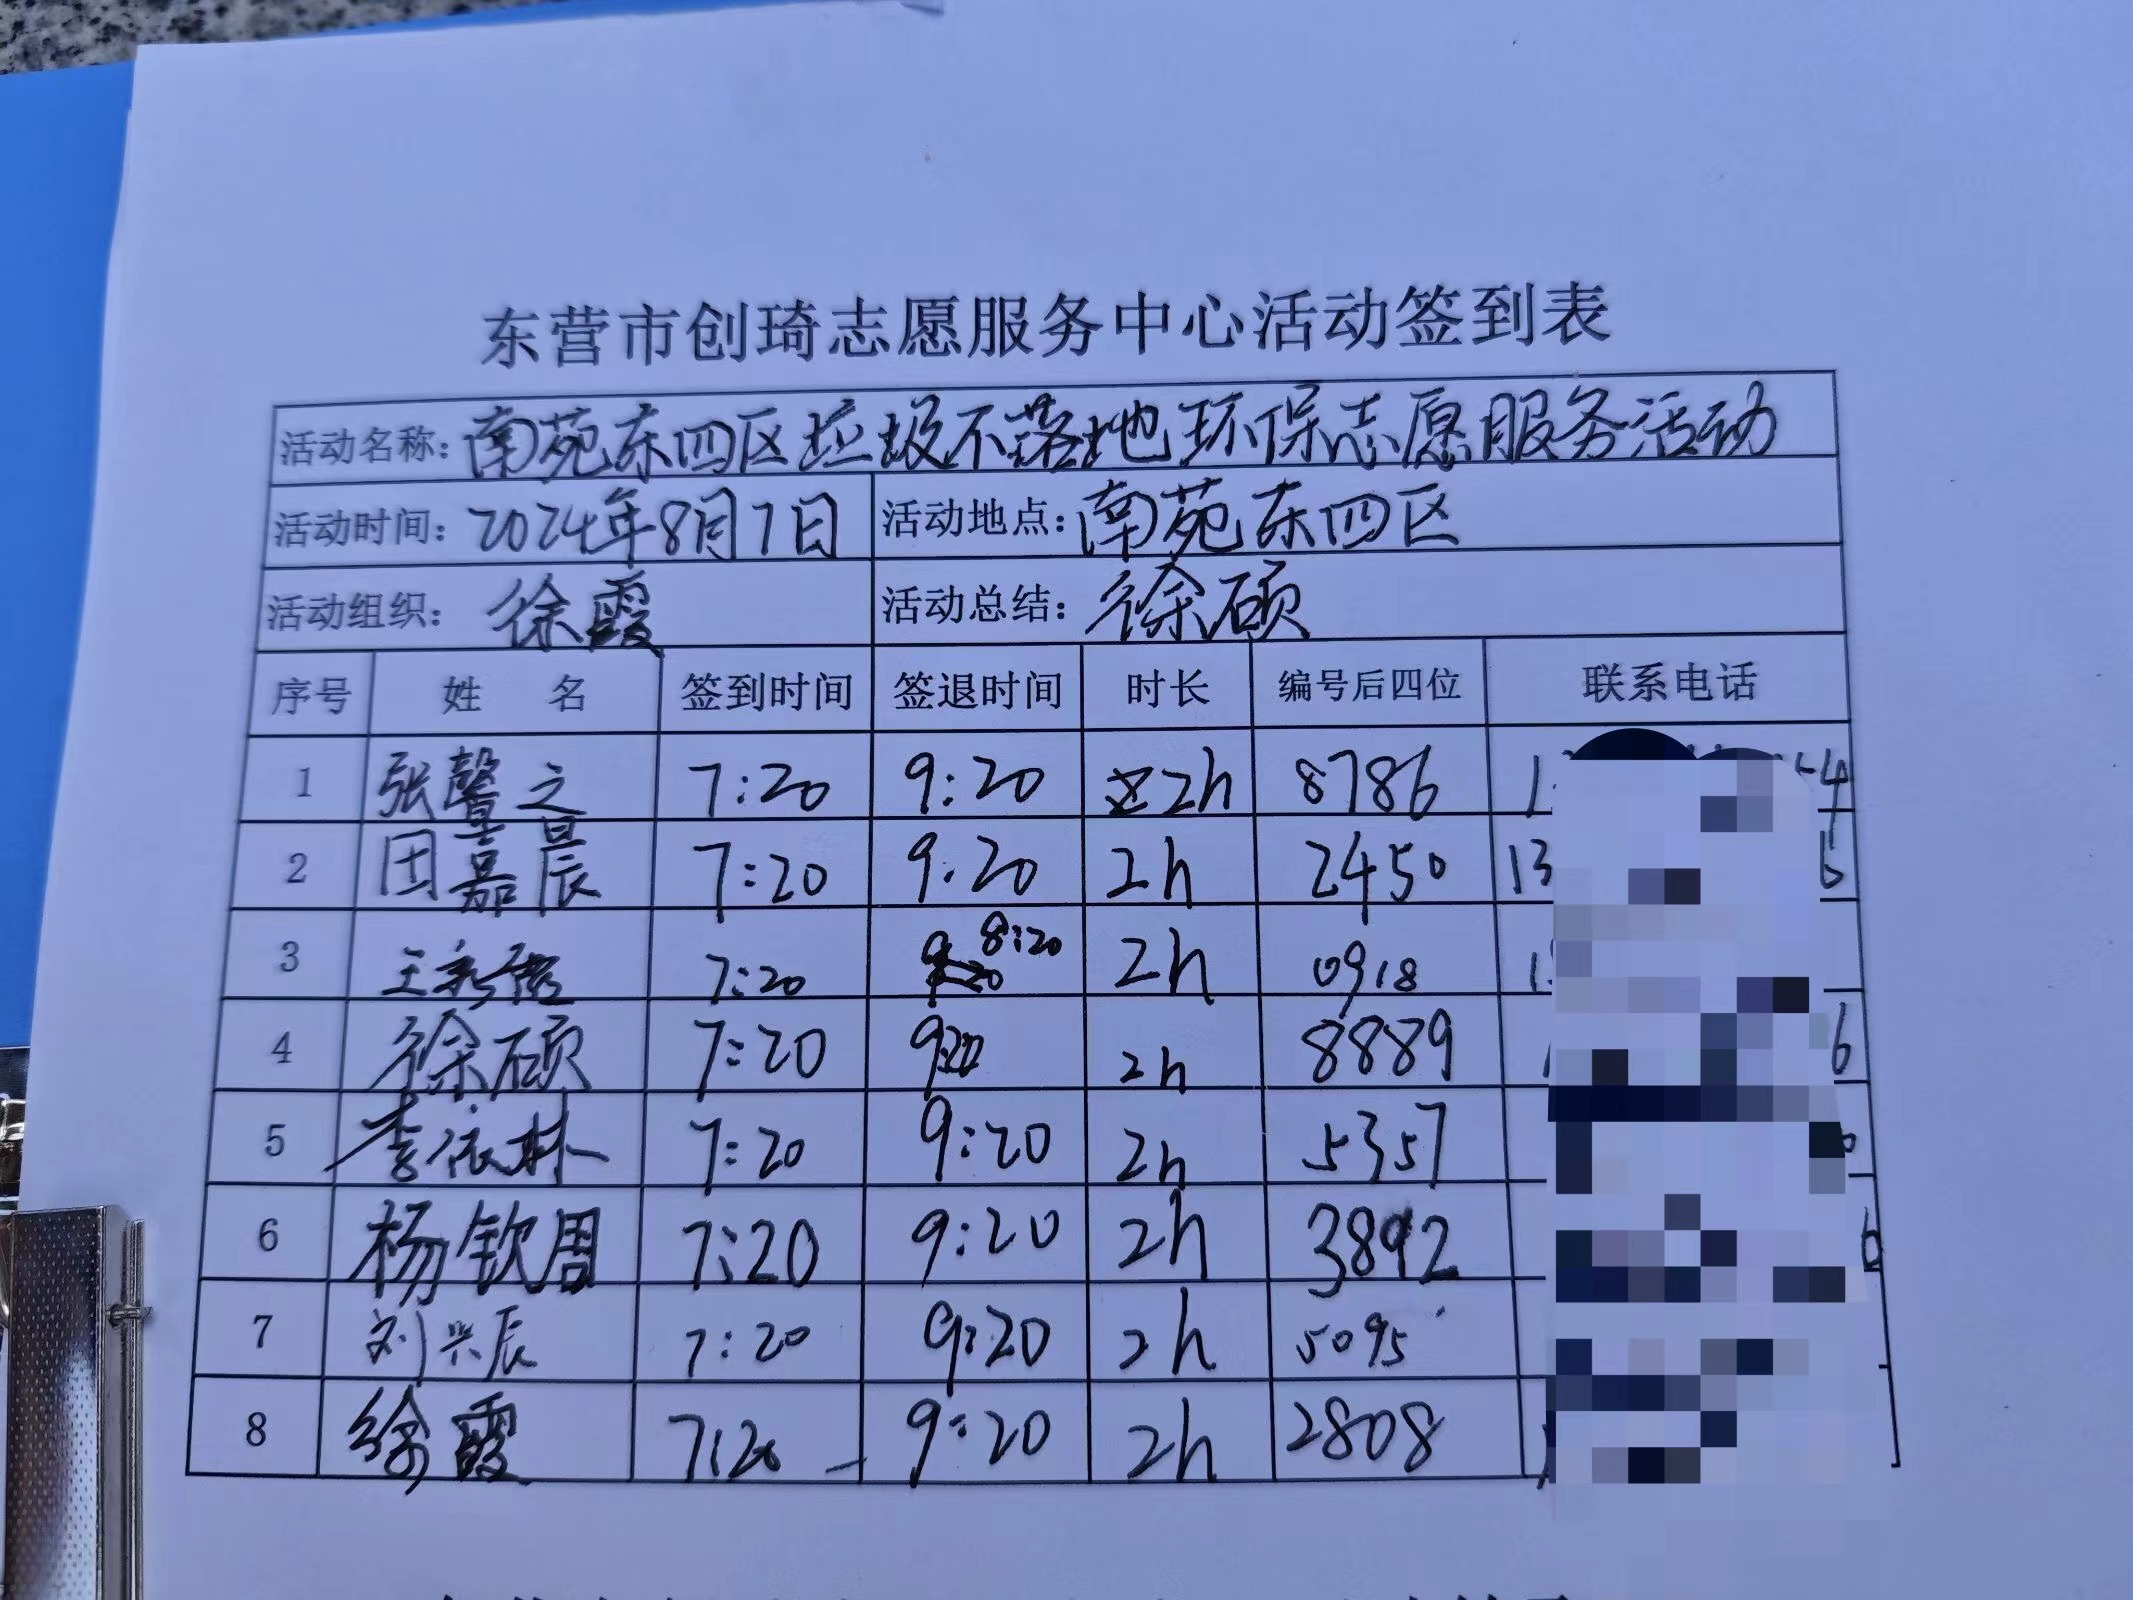 东营市创琦志愿服务中心活动签到表
活动名称：南苑东四区垃圾不落地环保志愿服务活动
活动时间：2024年8月7日 活动地点：南苑东四区
活动组织：徐霞 活动总结：徐硕
序号 姓 名 签到时间 签退时间 时长 编号后四位 联系电话
1 张馨之 7:20 9:20 2h 8786
2 田嘉晨 7:20 9:20 2h 2450 13
3 王 7:20 8:20 2h 0918
4 徐硕 7:20 9:20 2h 8889
5 李依林 7:20 9:20 2h 5357
6 杨钦周 7:20 9:20 2h 3892
7 刘兴辰 7:20 9:20 2h 5095
8 徐霞 7:20 9:20 2h 2808